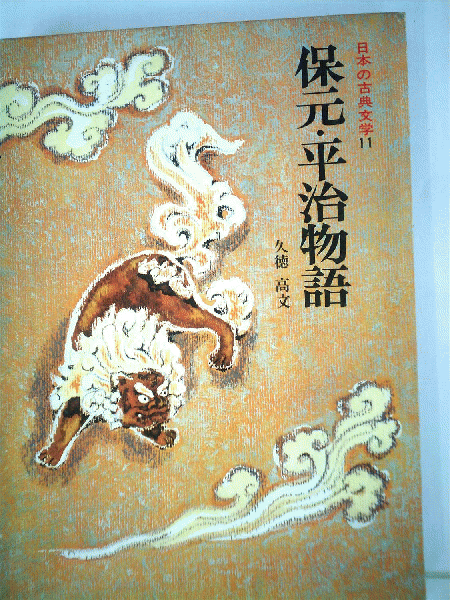 日本の古典文学11
保元・平治物語
久徳 高文